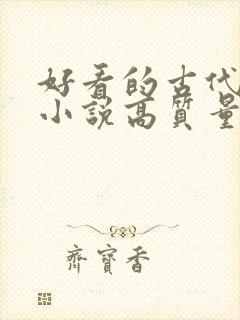 好看的古代
小说高質量
齊寶香